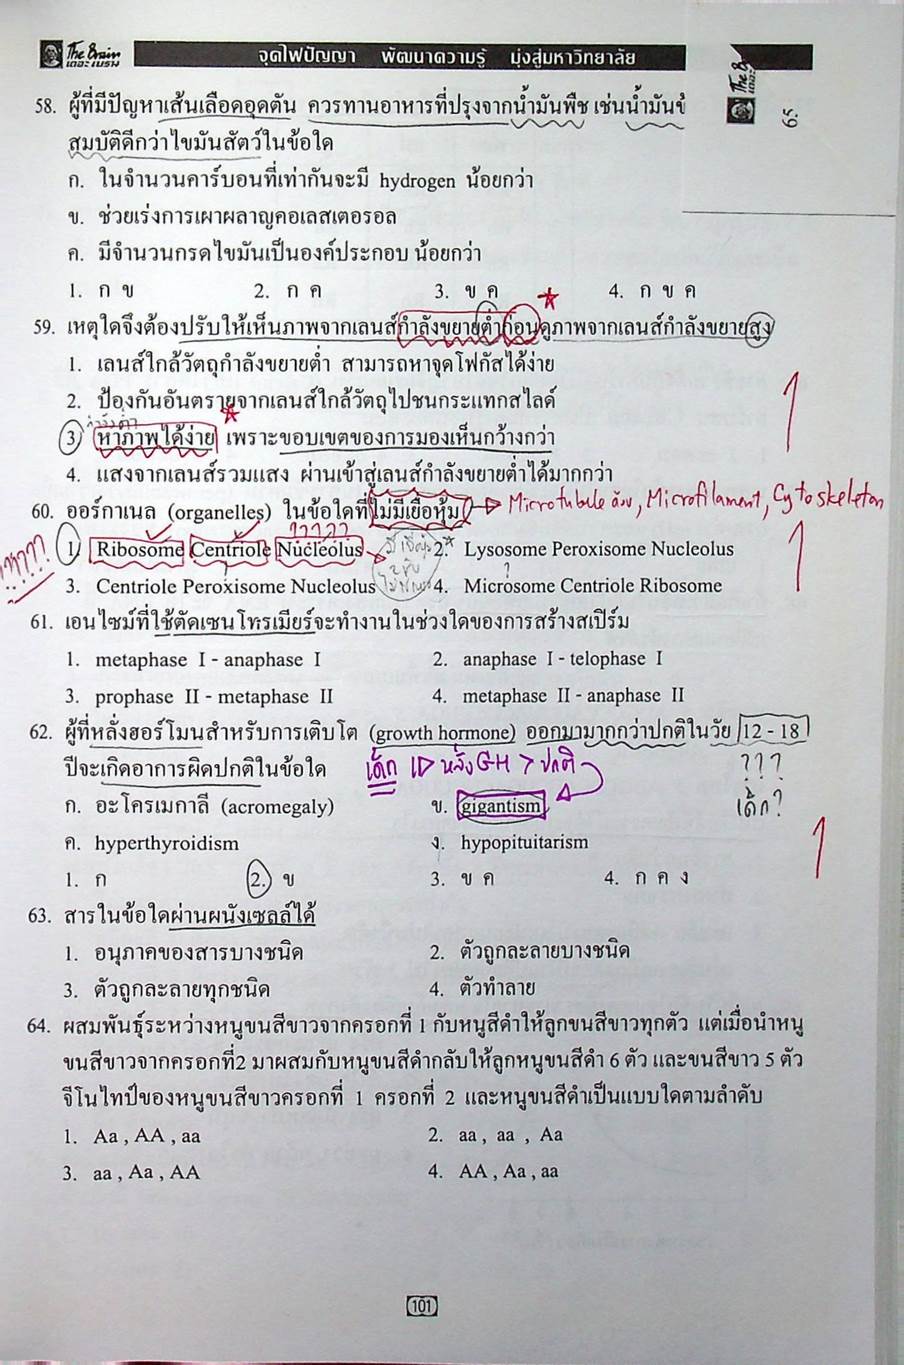 The Brain
เดอะเบรน
จุดไฟปัญญา พัฒนาความรู้ มุ่งสู่มหาวิทยาลัย
65
58. ผู้ที่มีปัญหาเส้นเลือดอุดตัน ควรทานอาหารที่ปรุงจากน้ำมันพืช เช่นน้ำมันข้
สมบัติดีกว่าไขมันสัตว์ในข้อใด
ก. ในจำนวนคาร์บอนที่เท่ากันจะมี hydrogen น้อยกว่า
ข. ช่วยเร่งการเผาผลาญคอเลสเตอรอล
ค. มีจำนวนกรดไขมันเป็นองค์ประกอบ น้อยกว่า
1. ก ข 2. ก ค 3. ข ค 4. ก ข ค
59. เหตุใดจึงต้องปรับให้เห็นภาพจากเลนส์กำลังขยายต่ำก่อนดูภาพจากเลนส์กำลังขยายสูง
1. เลนส์ใกล้วัตถุกำลังขยายต่ำ สามารถหาจุดโฟกัสได้ง่าย
2. ป้องกันอันตรายจากเลนส์ใกล้วัตถุไปชนกระแทกสไลด์
3. หาภาพได้ง่าย เพราะขอบเขตของการมองเห็นกว้างกว่า
4. แสงจากเลนส์รวมแสง ผ่านเข้าสู่เลนส์กำลังขยายต่ำได้มากกว่า
1
60. ออร์กาเนล (organelles) ในข้อใดที่ไม่มีเยื่อหุ้ม Microtubule, Microfilament, Cytoskeleton
?????
1. Ribosome Centriole Nucleolus 2. Lysosome Peroxisome Nucleolus
3. Centriole Peroxisome Nucleolus 4. Microsome Centriole Ribosome
1
61. เอนไซม์ที่ใช้ตัดเซนโทรเมียร์จะทำงานในช่วงใดของการสร้างสเปิร์ม
1. metaphase I - anaphase I 2. anaphase I - telophase I
3. prophase II - metaphase II 4. metaphase II - anaphase II
62. ผู้ที่หลั่งฮอร์โมนสำหรับการเติบโต (growth hormone) ออกมามากกว่าปกติในวัย 12 - 18
ปีจะเกิดอาการผิดปกติในข้อใด เด็ก หลั่ง GH > ปกติ ???
ก. อะโครเมกาลี (acromegaly) ข. gigantism เด็ก?
ค. hyperthyroidism ง. hypopituitarism
1
1. ก 2. ข 3. ข ค 4. ก ค ง
63. สารในข้อใดผ่านผนังเซลล์ได้
1. อนุภาคของสารบางชนิด 2. ตัวถูกละลายบางชนิด
3. ตัวถูกละลายทุกชนิด 4. ตัวทำลาย
64. ผสมพันธุ์ระหว่างหนูขนสีขาวจากครอกที่ 1 กับหนูสีดำให้ลูกขนสีขาวทุกตัว แต่เมื่อนำหนู
ขนสีขาวจากครอกที่2 มาผสมกับหนูขนสีดำกลับให้ลูกหนูขนสีดำ 6 ตัว และขนสีขาว 5 ตัว
จีโนไทป์ของหนูขนสีขาวครอกที่ 1 ครอกที่ 2 และหนูขนสีดำเป็นแบบใดตามลำดับ
1. Aa , AA , aa 2. aa , aa , Aa
3. aa , Aa , AA 4. AA , Aa , aa
101